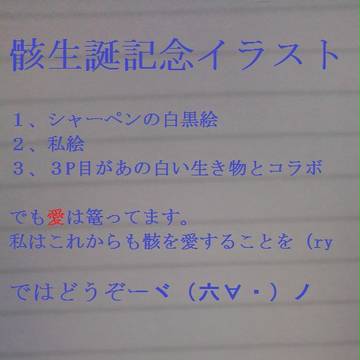 骸生誕記念イラスト
１、シャーペンの白黒絵
２、私絵
３、３P目があの白い生き物とコラボ
でも愛は篭ってます。
私はこれからも骸を愛することを（ry
ではどうぞーヾ（六∀・）ノ